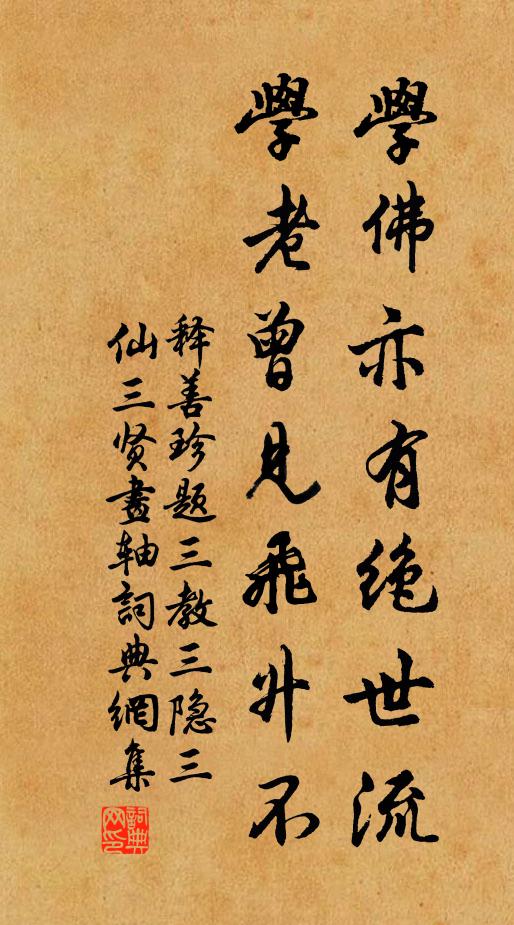 學佛亦有絶世流
學老曾見飛升不
释善珍题三教三隐三
仙三贤畫轴詞典網集
詞典
网印